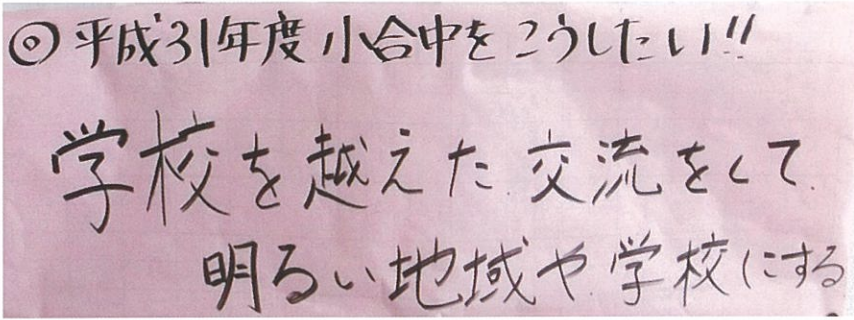 ◎平成31年度 小合中をこうしたい!!
学校を越えた交流をして
明るい地域や学校にする。